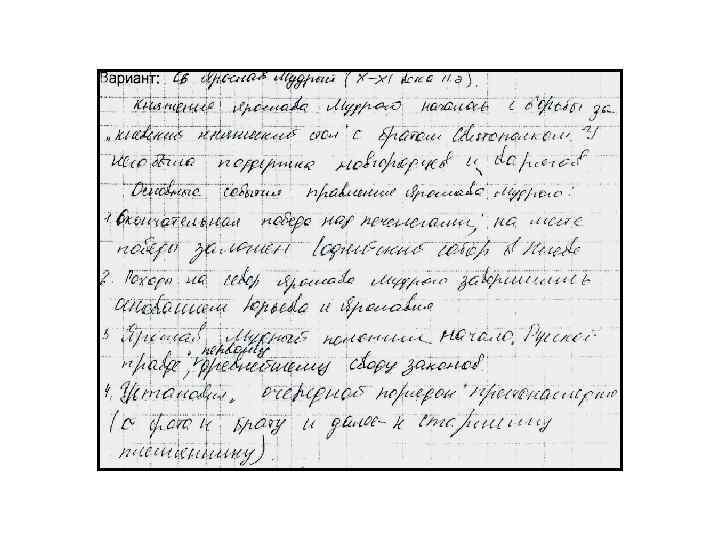 Вариант: Св Ярослав Мудрый (X-XI века н.э).
Княжение Ярослава Мудрого началось с борьбы за
„киевский княжеский стол" с братом Святополком. У
него была поддержка новгородцев и варягов
Основные события правления Ярослава Мудрого:
1. Окончательная победа над печенегами; на месте
победы заложен Софийский собор в Киеве
2. Походы на север Ярослава Мудрого завершились
основанием Юрьева и Ярославля
3 Ярослав Мудрый положил начало „Русской
правде", первому
древнейшему своду законов
4. Установил „очередной порядок" престолонаследия
(от брата к брату и далее - к старшему
племяннику)